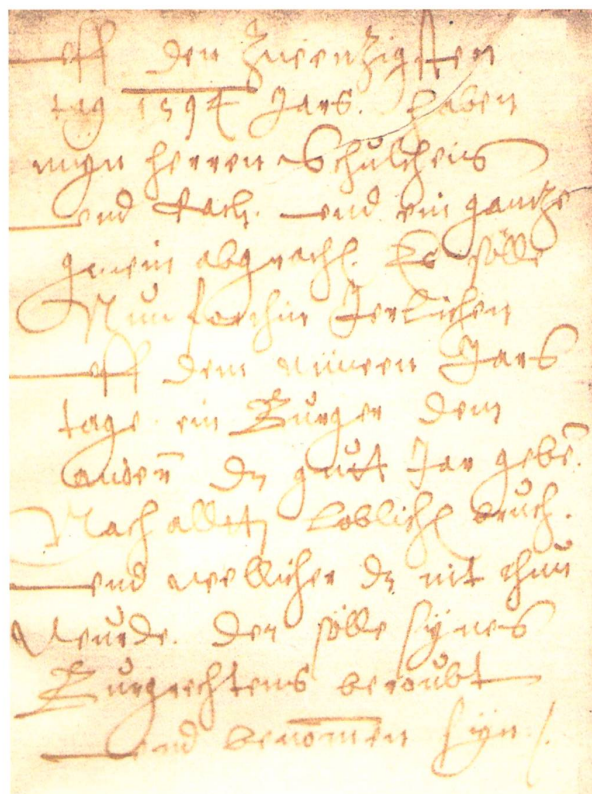 uff den Zwenzigsten
tag 1594 Jars. haben
myn herren Schultheis
und Rath. und ein gantze
gmein abgrath. Es sölle
Nun forthin Jerlichen
uff dem nüwen Jars
tage ein Burger dem
andern dz gutt Jar gebē.
Nach allte loblich bruch.
und wellicher dz nit thun
wurde. der sölle synes
Burgrechtens beroubt
und benommen syn /.